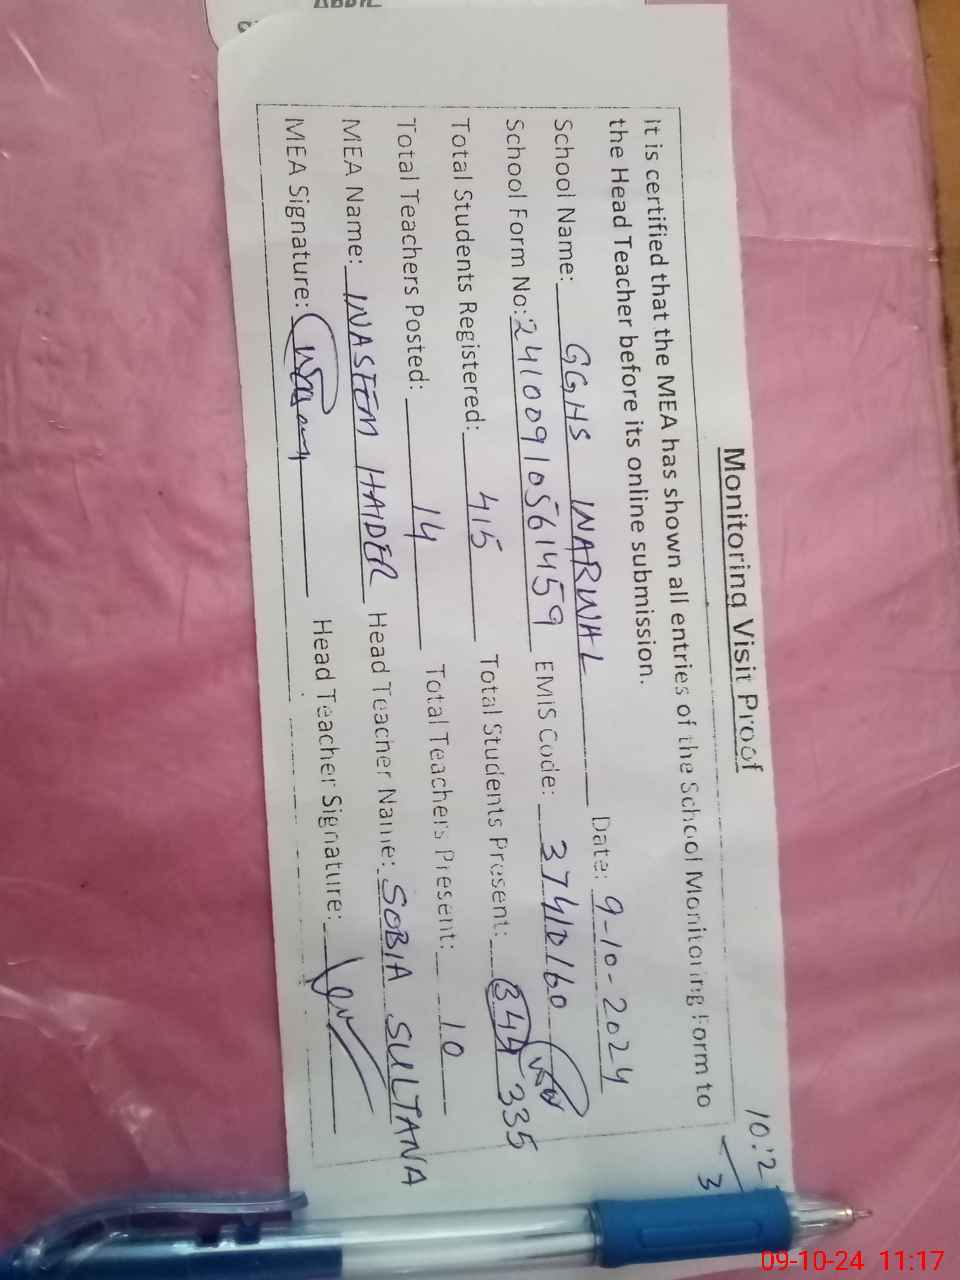 Monitoring Visit Proof
It is certified that the MEA has shown all entries of the School Monitoring Form to
the Head Teacher before its online submission.
School Name: GGHS WARWAL Date: 9-10-2024
School Form No: 24100910561459 EMIS Code: 37410160
Total Students Registered: 415 Total Students Present: 344 335
Total Teachers Posted: 14 Total Teachers Present: 10
MEA Name: WASEEM HAIDER Head Teacher Name: SOBIA SULTANA
MEA Signature: Head Teacher Signature:
09-10-24 11:17